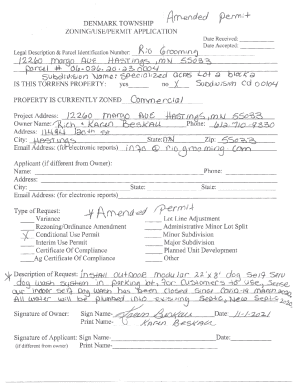 Amended Permit
DENMARK TOWNSHIP
ZONING/USE/PERMIT APPLICATION
Date Received:
Date Accepted:
Legal Description & Parcel Identification Number: Rio Grooming
12260 Margo Ave Hastings, MN 55033
Parcel # 06.026.20.23.0004
Subdivision Name: Specialized acres Lot 2 Block 2
IS THIS TORRENS PROPERTY: yes X no Subdivision cd
PROPERTY IS CURRENTLY ZONED Commercial
Project Address: 12260 Margo Ave Hastings, MN 55033
Owner Name: Rich + Karen Beskau Phone: 612.710-8330
Address: 120th St
City: Hastings State: MN Zip: 55033
Email Address: (for electronic reports) info @ riogrooming.com
Applicant (if different from Owner):
Name: Phone:
Address:
City: State: State:
Email Address: (for electronic reports)
Type of Request: * Amended Permit
Variance Lot Line Adjustment
Rezoning/Ordinance Amendment Administrative Minor Lot Split
X Conditional Use Permit Minor Subdivision
Interim Use Permit Major Subdivision
Certificate Of Compliance Planned Unit Development
Ag Certificate Of Compliance Other
* Description of Request: Install outdoor modular 22'x8' dog self serv
dog wash system in parking lot, for customers to use, since
our indoor self dog wash has been closed since covid-19 march 2020
All water will be plumbed into existing septic, New septic 2020
Signature of Owner: Sign Name- Karen Beskau Date: 11-1-2021
Print Name- Karen Beskau
Signature of Applicant: Sign Name- Date:
(if different from owner) Print Name-